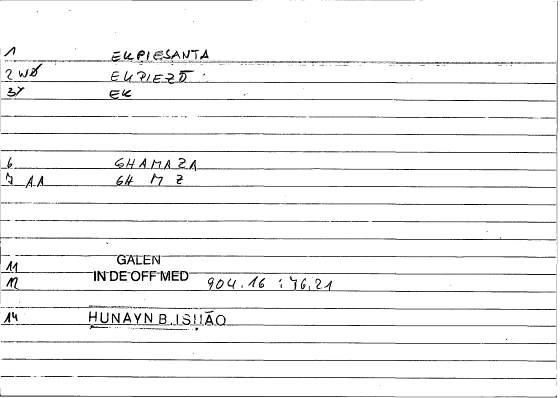 1 EKPIESANTA
2 WØ EKPIEZŌ
3Y EK
6 GHAMAZA
7 AA GH M Z
11 GALEN
12 IN DE OFF MED 904.16 : 76,21
14 HUNAYN B. ISḤĀQ